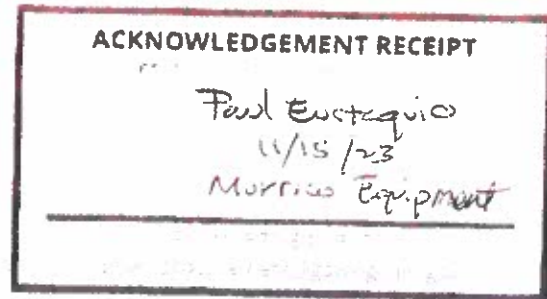 ACKNOWLEDGEMENT RECEIPT
Paul Eustaquio
11/15/23
Morrico Equipment